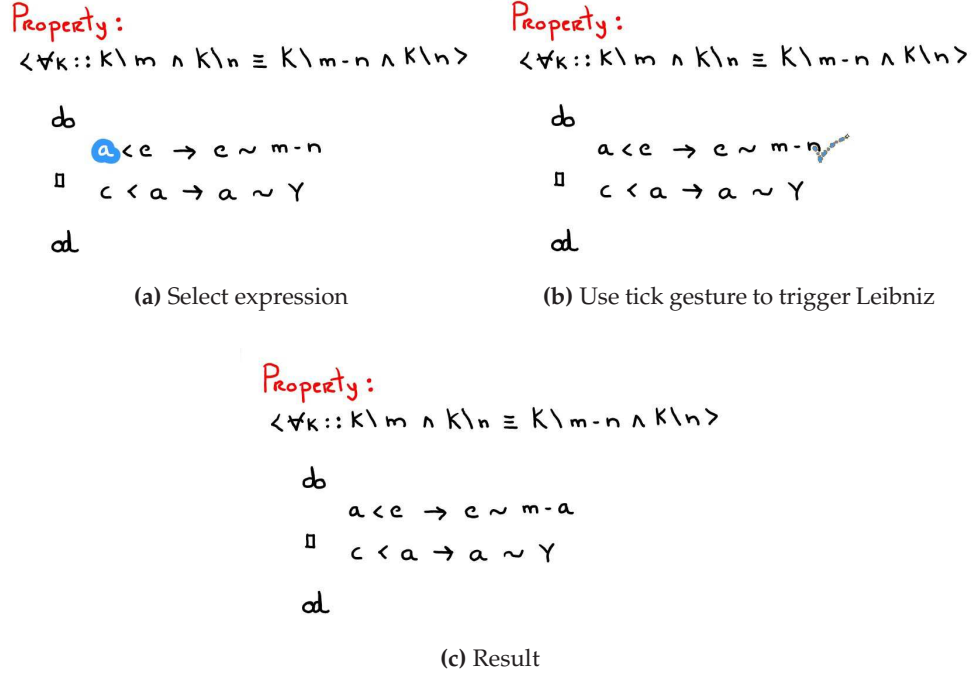 Property:
<∀K:: K\m ∧ K\n ≡ K\m-n ∧ K\n>
do
a<e → e ~ m-n
▯ c < a → a ~ Y
od
(a) Select expression
Property:
<∀K:: K\m ∧ K\n ≡ K\m-n ∧ K\n>
do
a<e → e ~ m-n
▯ c < a → a ~ Y
od
(b) Use tick gesture to trigger Leibniz
Property:
<∀K:: K\m ∧ K\n ≡ K\m-n ∧ K\n>
do
a<e → e ~ m-a
▯ c < a → a ~ Y
od
(c) Result